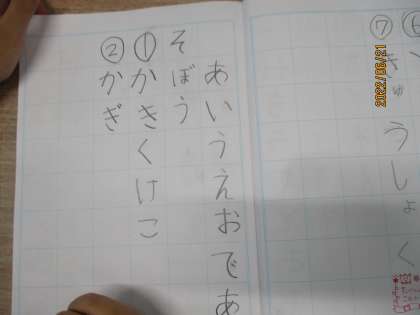 ⑦きゅうしょく
あいうえおであ
そぼう
①かきくけこ
②かぎ
2022/06/21